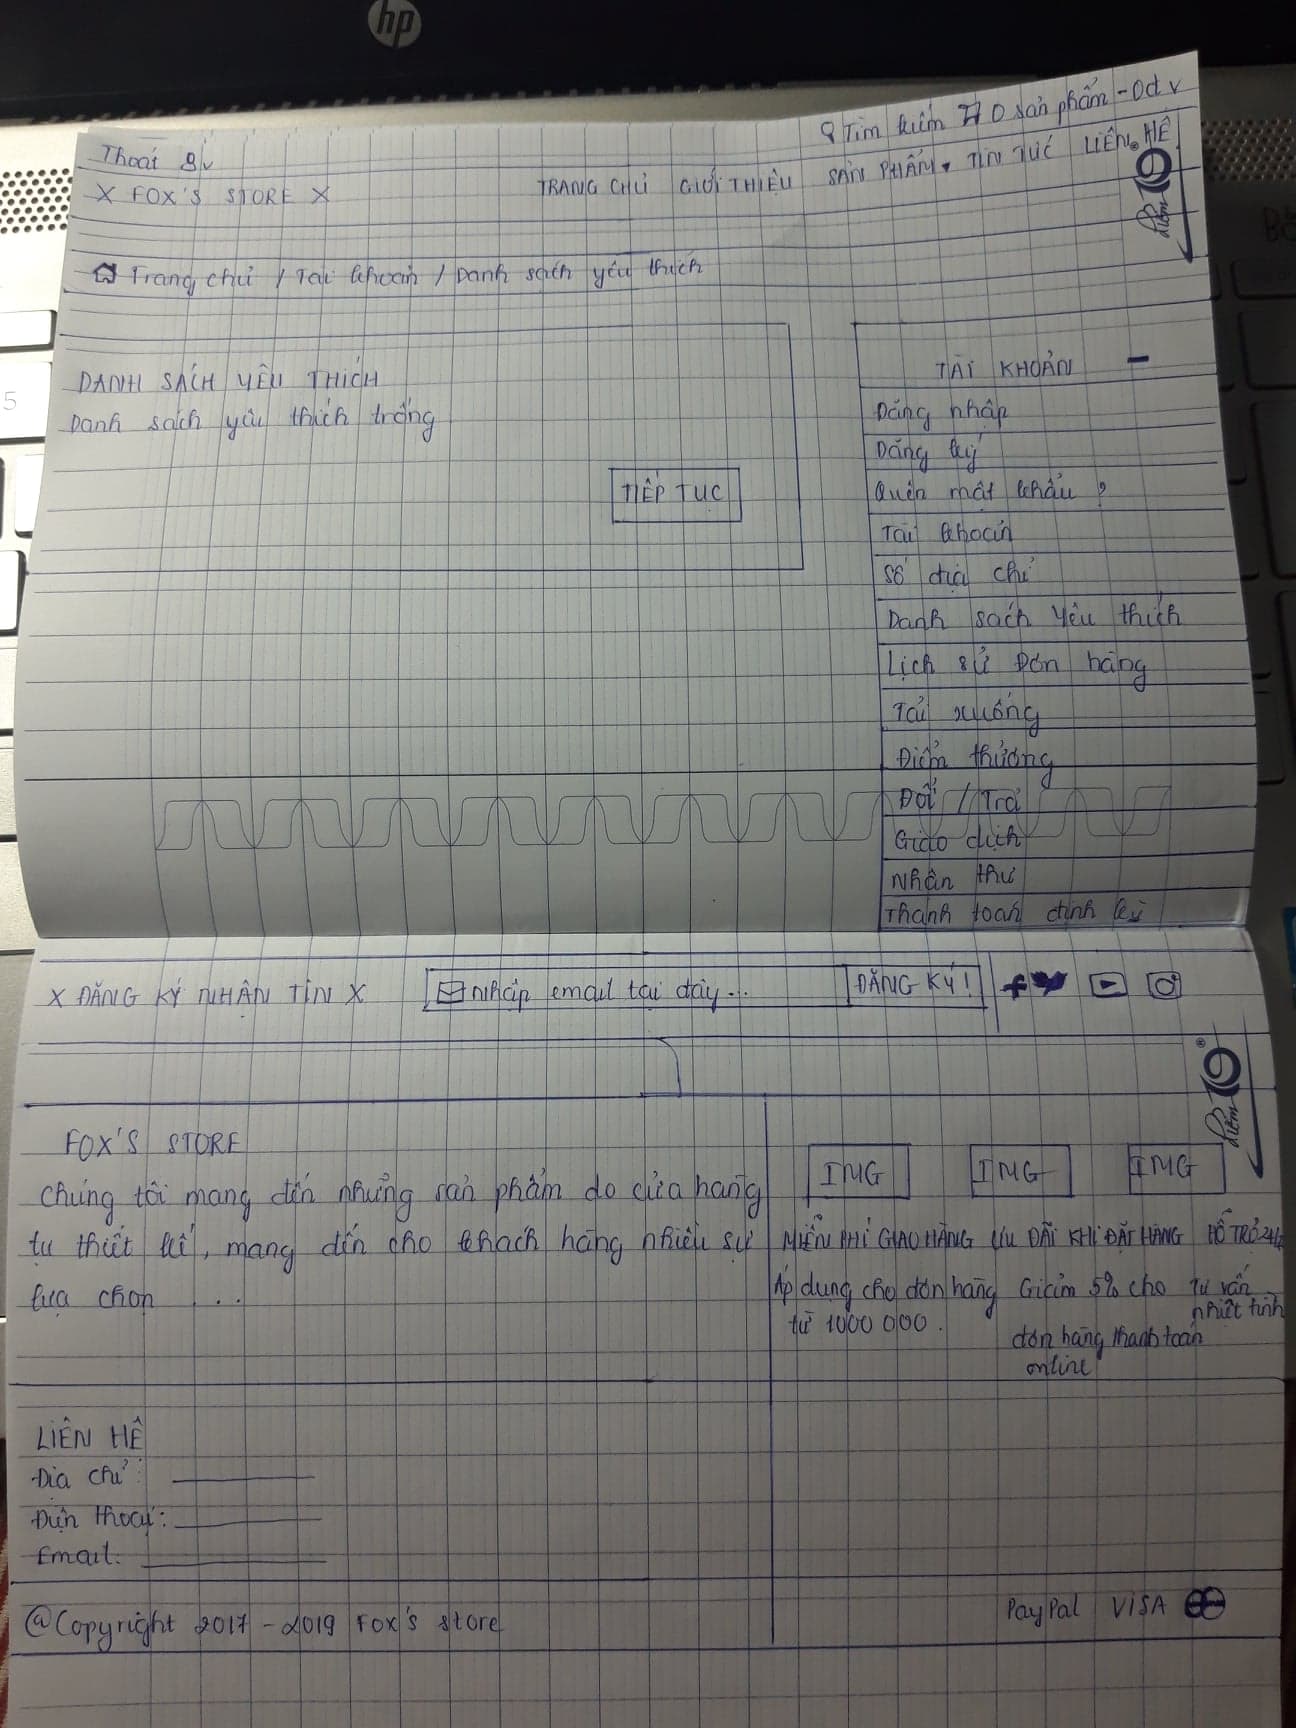 hp
Tìm kiếm 0 sản phẩm - 0đ v
Thoát
X FOX'S STORE X
TRANG CHỦ GIỚI THIỆU SẢN PHẨM TIN TỨC LIÊN HỆ
điểm 10
Trang chủ / Tài khoản / Danh sách yêu thích
DANH SÁCH YÊU THÍCH
Danh sách yêu thích trống
TIẾP TỤC
TÀI KHOẢN -
Đăng nhập
Đăng ký
Quên mật khẩu ?
Tài khoản
Sổ địa chỉ
Danh sách yêu thích
Lịch sử Đơn hàng
Tải xuống
Điểm thưởng
Đổi / Trả
Giao dịch
Nhận thư
Thanh toán định kỳ
X ĐĂNG KÝ NHẬN TIN X
Nhập email tại đây...
ĐĂNG KÝ !
điểm 10
FOX'S STORE
Chúng tôi mang đến những sản phẩm do cửa hàng
tự thiết kế, mang đến cho khách hàng nhiều sự
lựa chọn ...
IMG IMG IMG
MIỄN PHÍ GIAO HÀNG ƯU ĐÃI KHI ĐẶT HÀNG HỖ TRỢ 24/
Áp dụng cho đơn hàng
từ 1000 000.
Giảm 5% cho
đơn hàng thanh toán
online
Tư vấn
nhiệt tình
LIÊN HỆ
Địa chỉ :
Điện thoại :
Email:
@Copyright 2017 - 2019 Fox's store
PayPal VISA